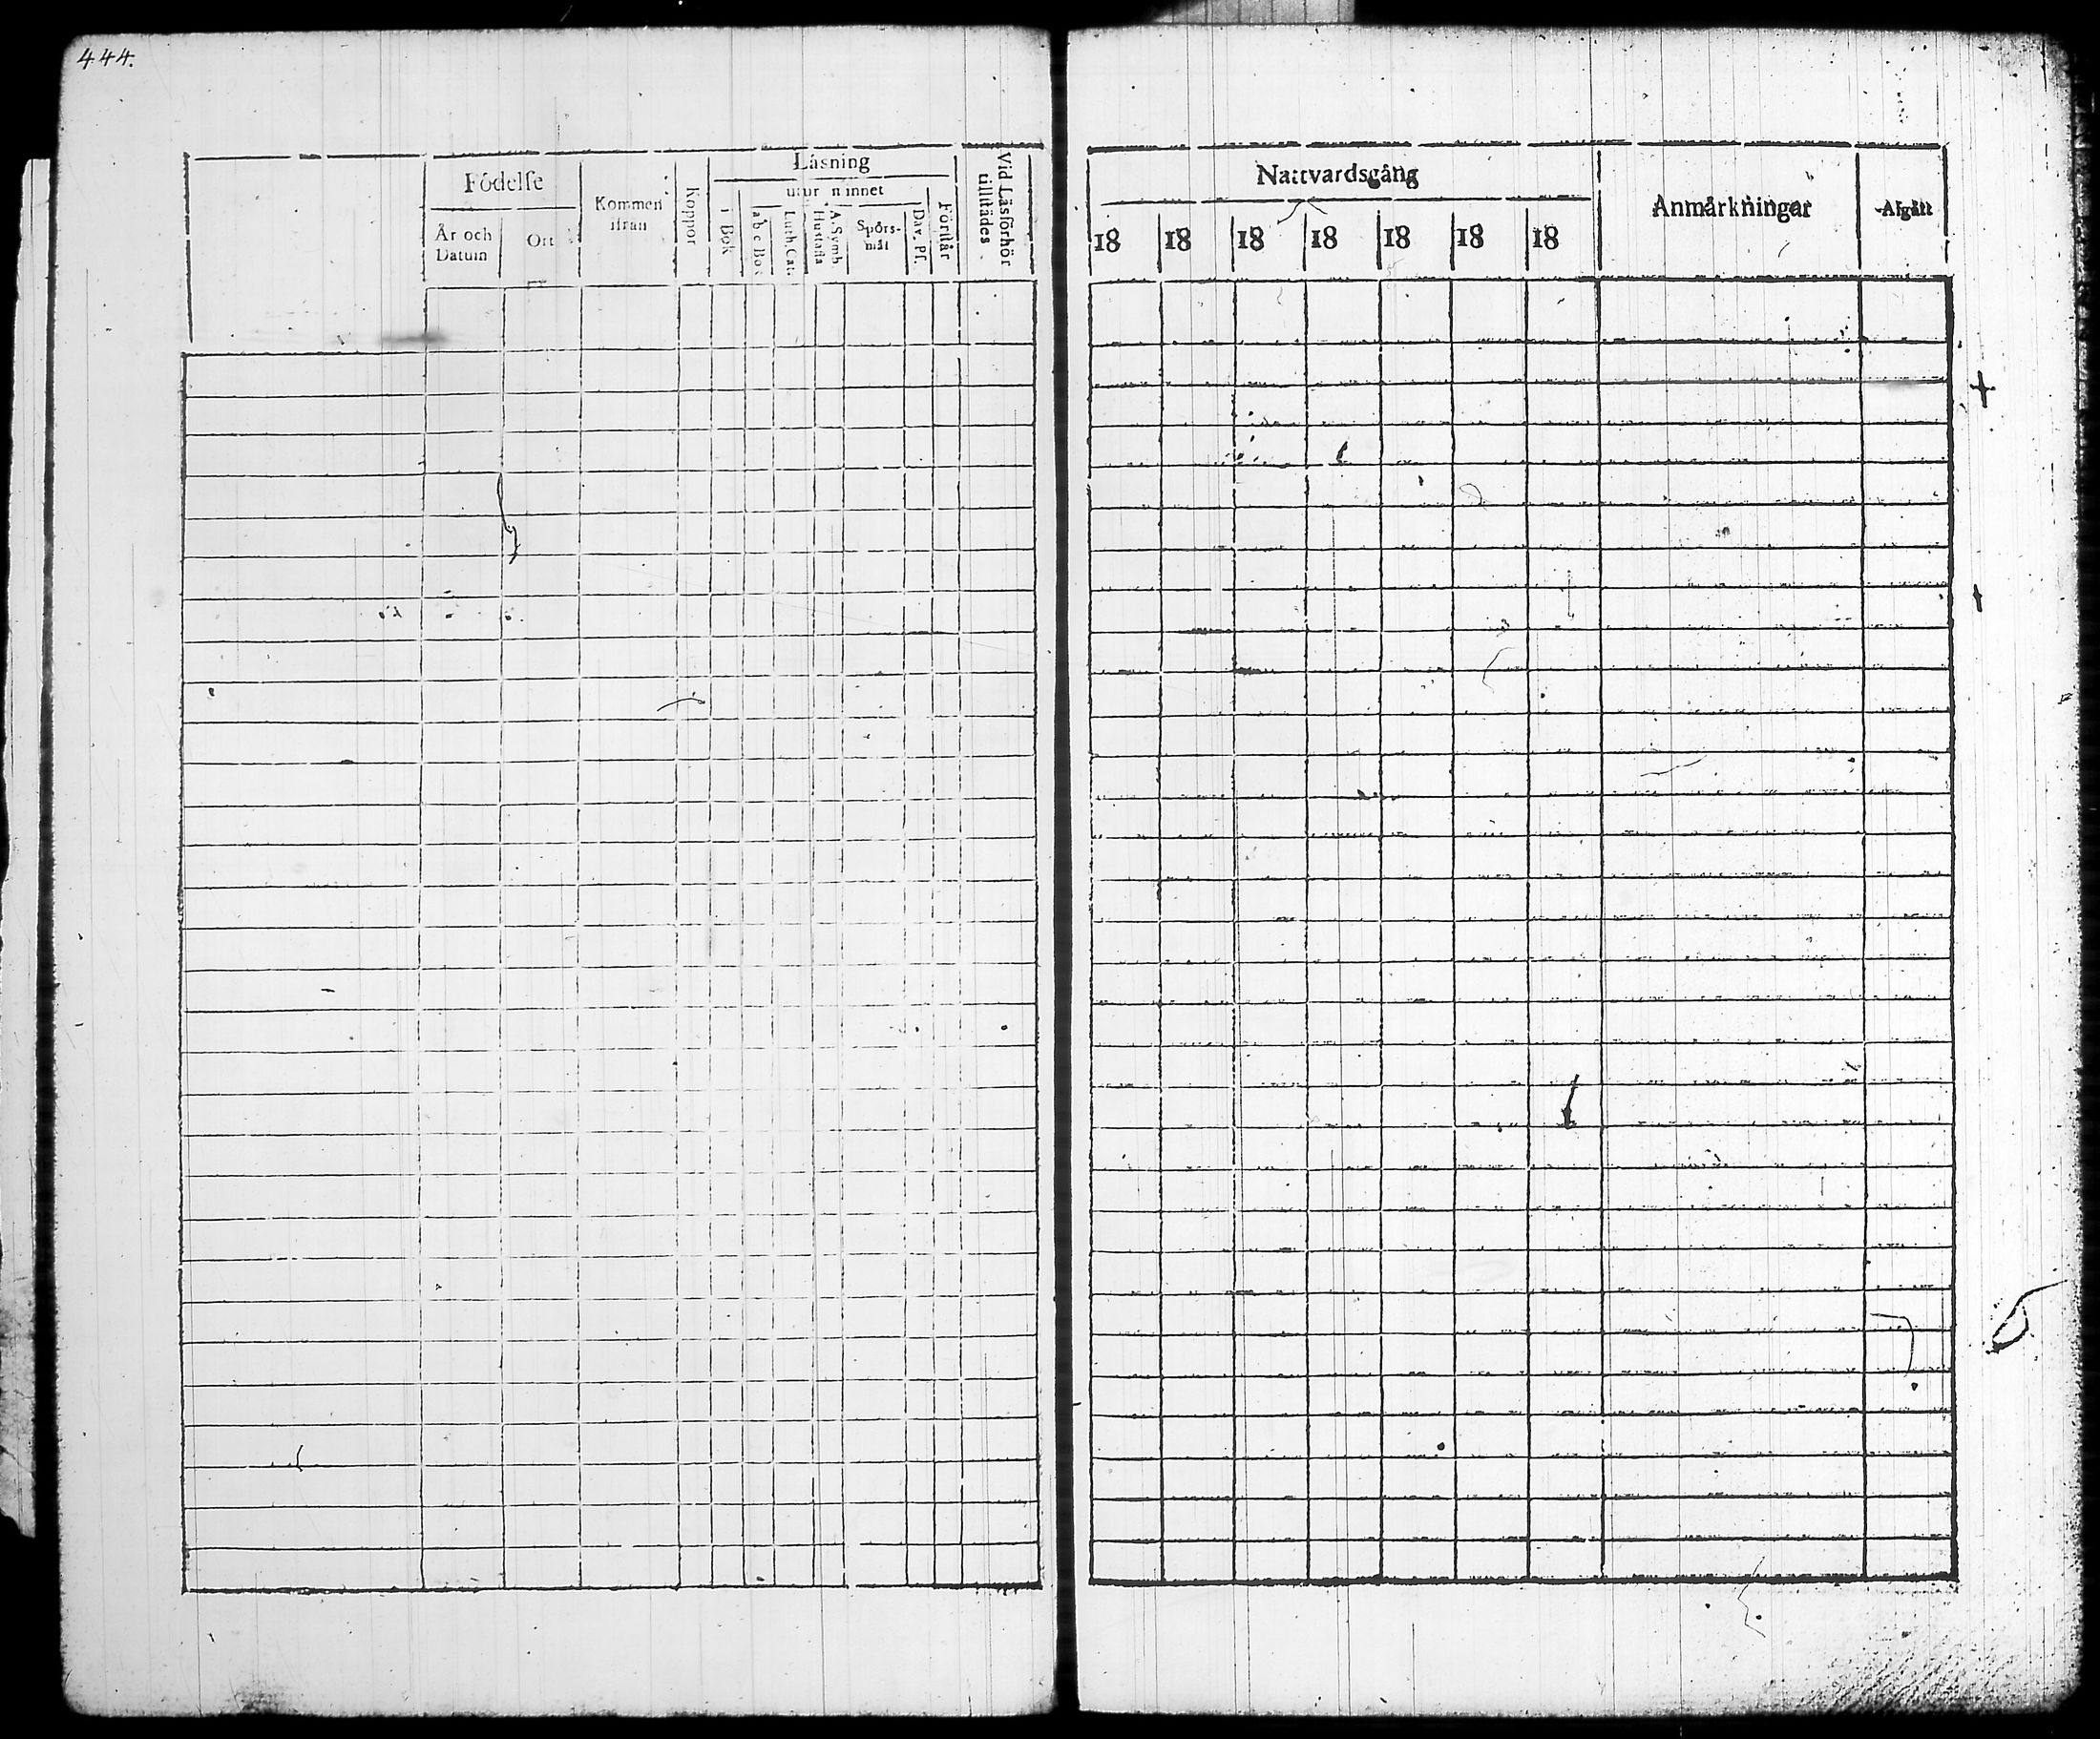 444.
Födelse
År och Datum
Ort
Kommen ifrån
Koppor
Läsning
utur minnet
i Bok
a b c Bok
Luth. Cat.
A. Symb. Hustafla
Spörs-mål
Dav. Ps.
Förstår
Vid Läsförhör tillstädes
Nattvardsgång
18 18 18 18 18 18 18
Anmärkningar
Afgått